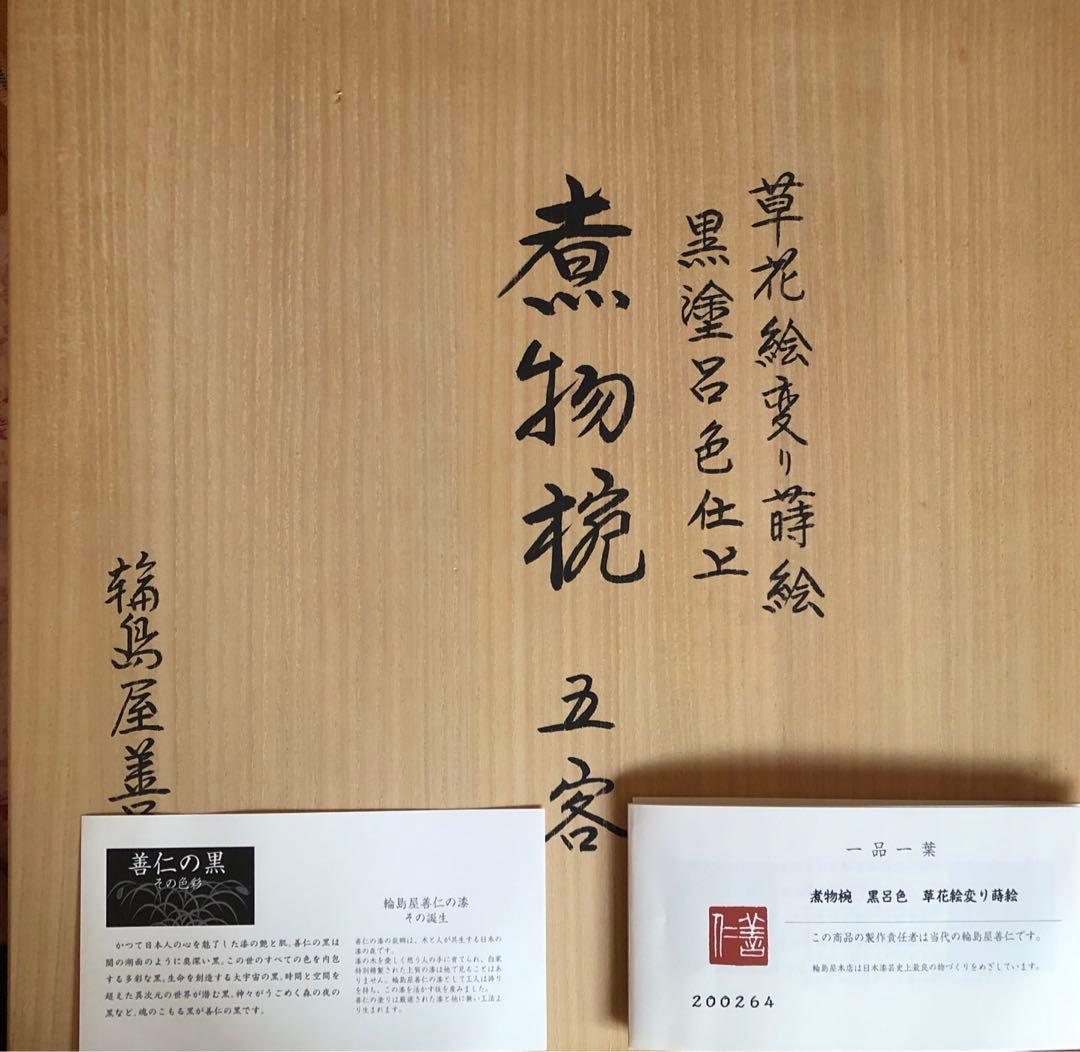 草花絵変り蒔絵
黒塗呂色仕上
煮物椀 五客
輪島屋善
善仁の黒
その色彩
かつて日本人の心を魅了した漆の艶と肌。善仁の黒は
闇の湖面のように奥深い黒。この世のすべての色を内包
する多彩な黒。生命を創造する大宇宙の黒。時間と空間を
超えた異次元の世界が潜む黒。神々がうごめく森の夜の
黒など、魂のこもる黒が善仁の黒です。
輪島屋善仁の漆
その誕生
善仁の漆の故郷は、木と人が共生する日本の
漆の森です。
漆の木を愛しく想う人の手に育てられ、自家
特別精製された上質の漆は他で見ることはあ
りません。輪島屋善仁の漆として工人は誇り
を持ち、この漆を活かす技を産みました。
善仁の塗りは厳選された漆と他に無い工法よ
り生まれます。
一品一葉
煮物椀 黒呂色 草花絵変り蒔絵
善仁
この商品の製作責任者は当代の輪島屋善仁です。
輪島屋本店は日本漆芸史上最良の物づくりをめざしています。
200264